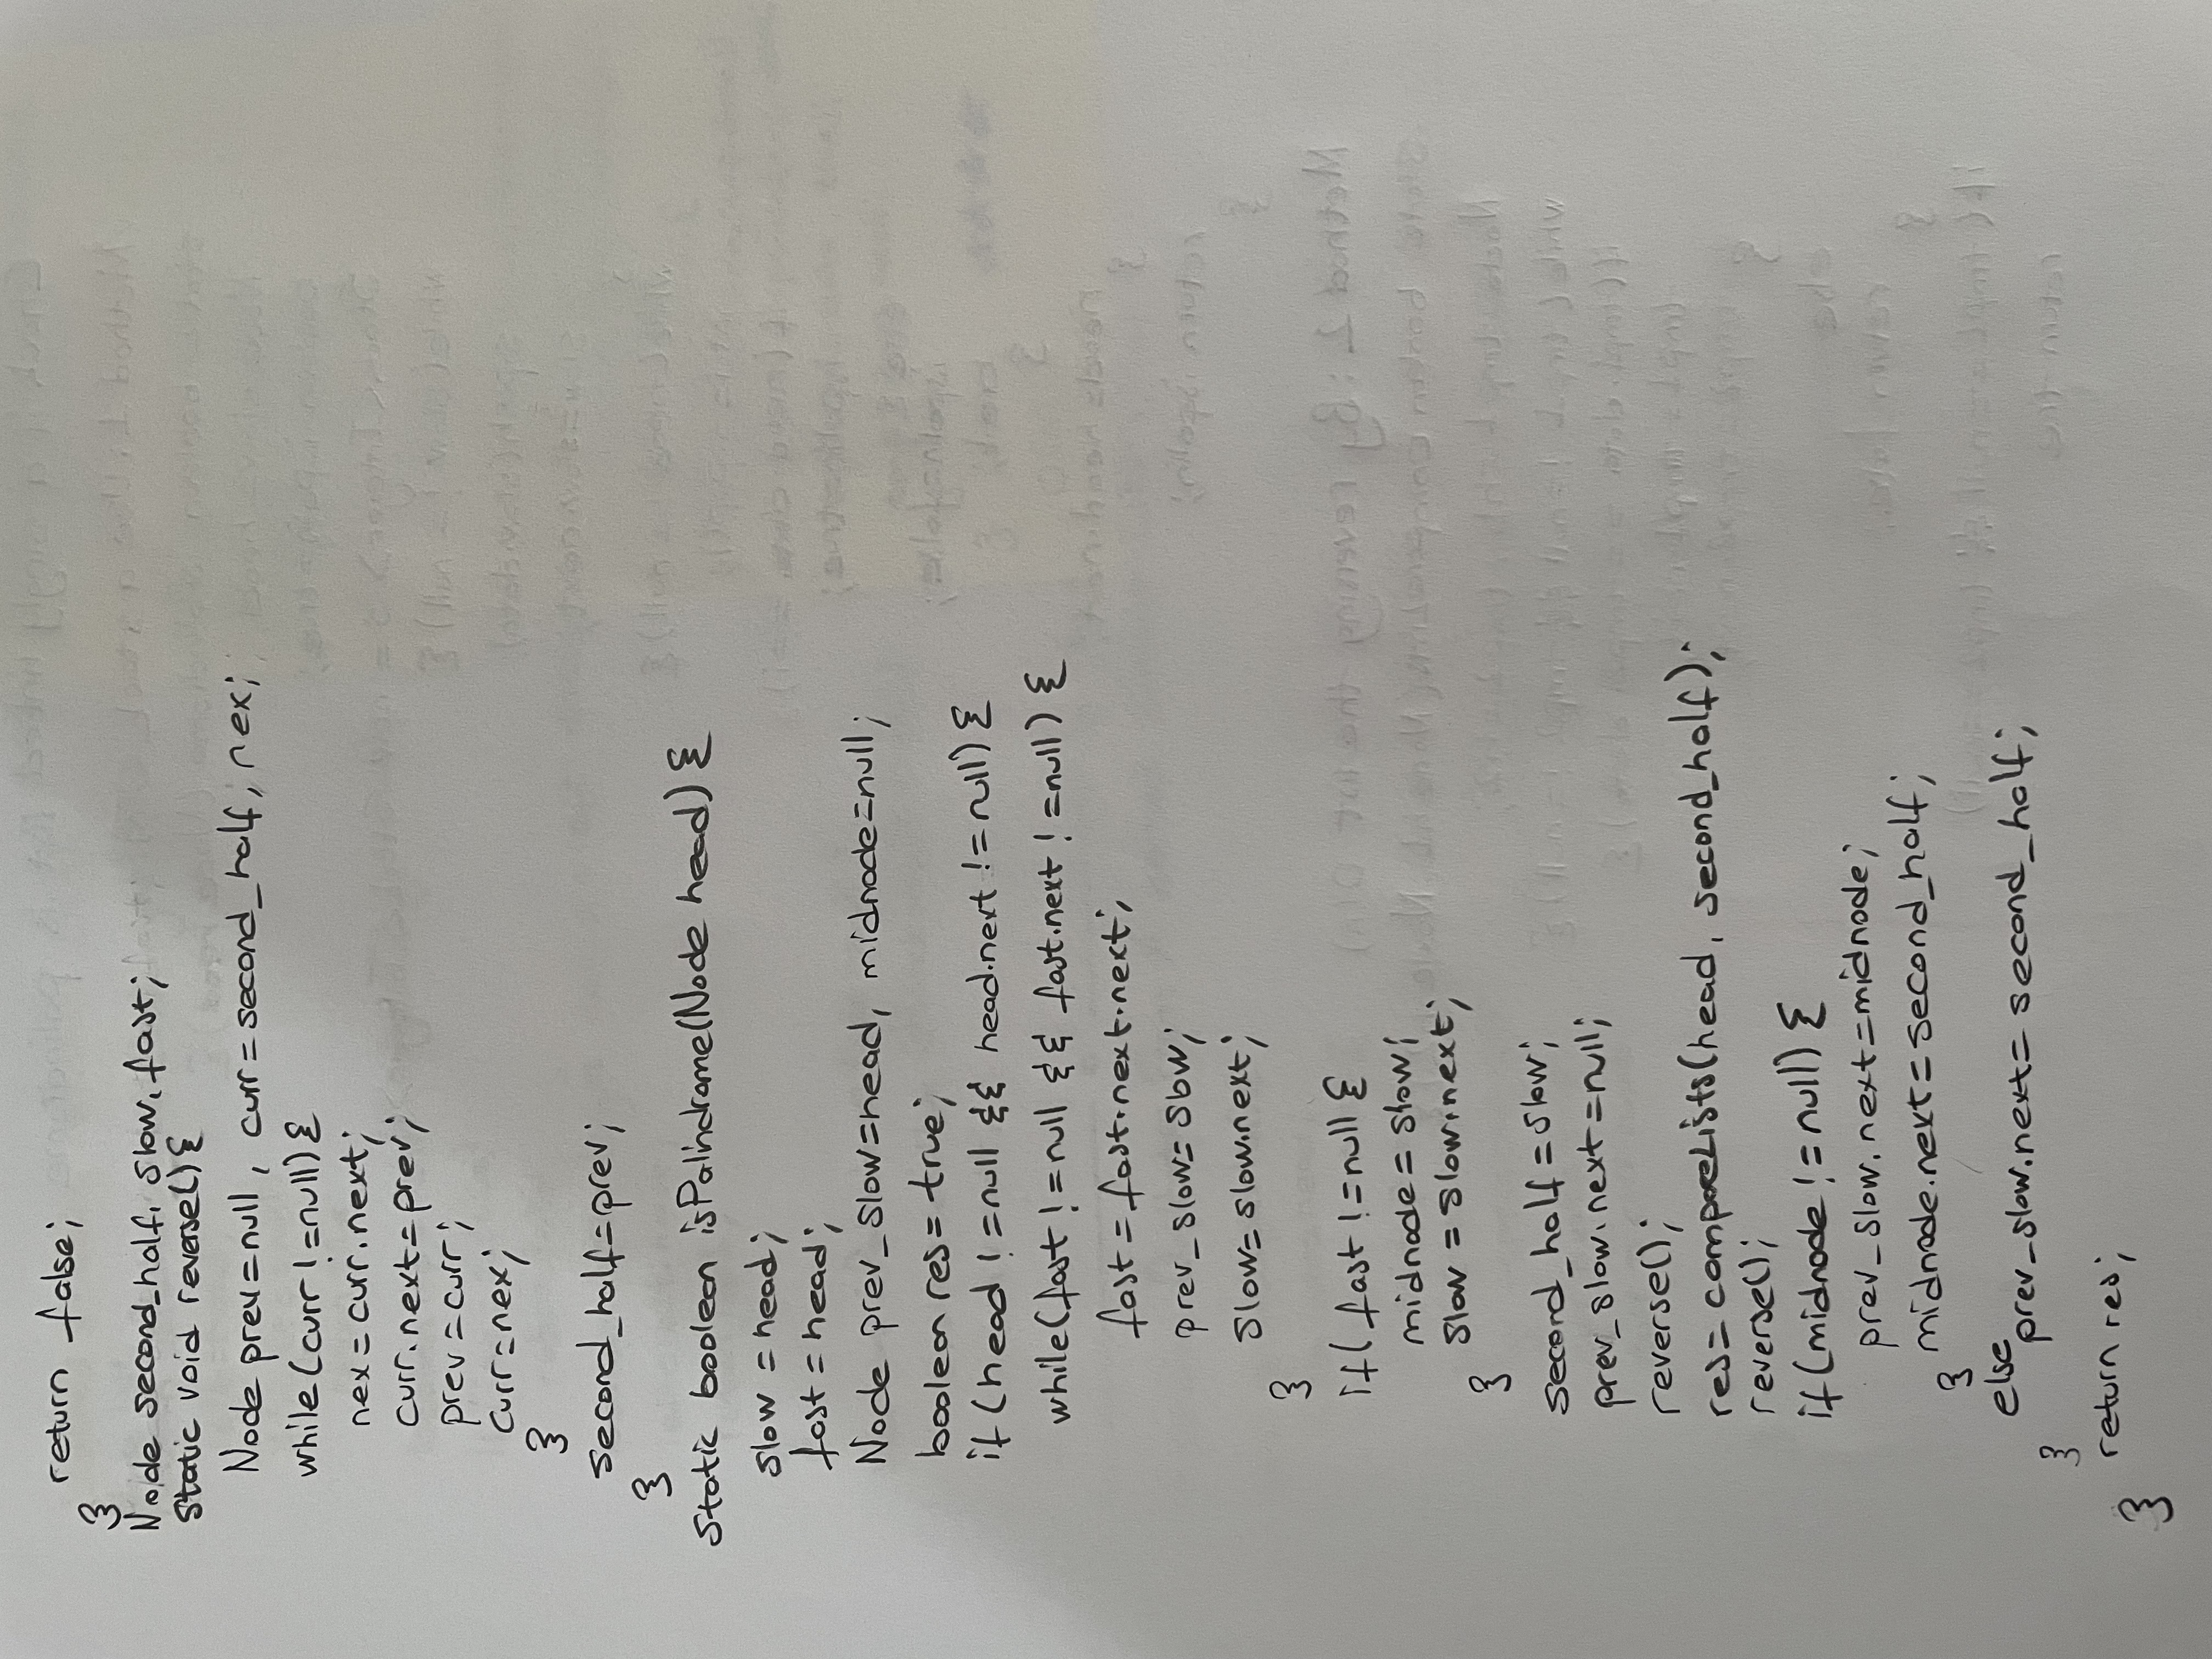 return false;
}
Node second_half, slow, fast;
static void reverse(){
Node prev=null, curr=second_half, nex;
while(curr!=null){
nex=curr.next;
curr.next=prev;
prev=curr;
curr=nex;
}
second_half=prev;
}
static boolean isPalindrome(Node head){
slow = head;
fast = head;
Node prev_slow=head, midnode=null;
boolean res= true;
if(head !=null && head.next !=null){
while(fast !=null && fast.next !=null){
fast = fast.next.next;
prev_slow= slow;
slow= slow.next;
}
if( fast !=null {
midnode = slow;
slow = slow.next;
}
second_half = slow;
prev_slow.next=null;
reverse();
res= compareLists(head, second_half);
reverse();
if(midnode !=null){
prev_slow.next=midnode;
midnode.next=second_half;
}
else
prev_slow.next= second_half;
}
return res;
}